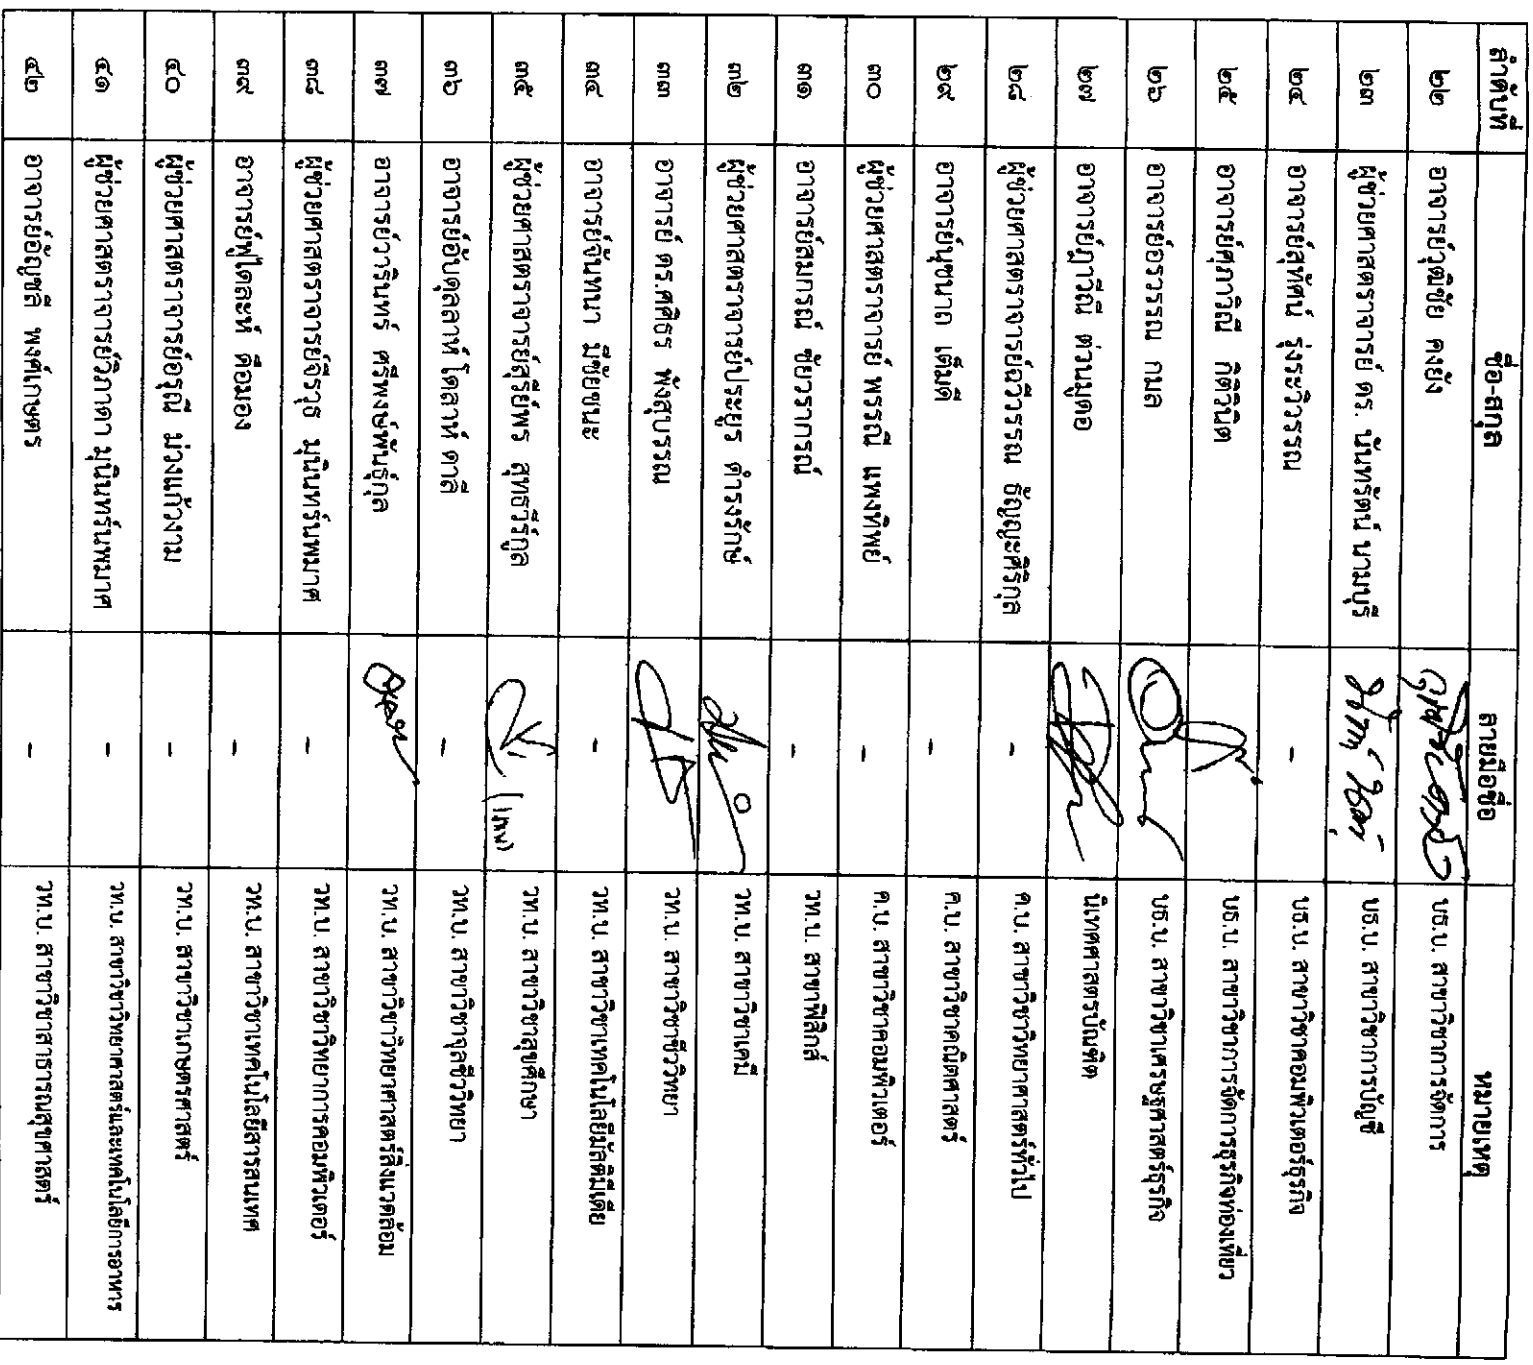 ลำดับที่ ชื่อ-สกุล ลายมือชื่อ หมายเหตุ
๒๒ อาจารย์วุฒิชัย คงยัง บธ.บ. สาขาวิชาการจัดการ
๒๓ ผู้ช่วยศาสตราจารย์ ดร. นันทรัตน์ นามบุรี บธ.บ. สาขาวิชาการบัญชี
๒๔ อาจารย์สุทัศน์ รุ่งระวิวรรณ - บธ.บ. สาขาวิชาคอมพิวเตอร์ธุรกิจ
๒๕ อาจารย์ศุภาวิณี กิติวินิต บธ.บ. สาขาวิชาการจัดการธุรกิจท่องเที่ยว
๒๖ อาจารย์อรวรรณ กมล บธ.บ. สาขาวิชาเศรษฐศาสตร์ธุรกิจ
๒๗ อาจารย์ภาวิณี ต่วนมูดอ นิเทศศาสตรบัณฑิต
๒๘ ผู้ช่วยศาสตราจารย์ฉวีวรรณ ธัญญะศิริกุล - ค.บ. สาขาวิชาวิทยาศาสตร์ทั่วไป
๒๙ อาจารย์นุชนาถ เต็มดี - ค.บ. สาขาวิชาคณิตศาสตร์
๓๐ ผู้ช่วยศาสตราจารย์ พรรณี แพงทิพย์ - ค.บ. สาขาวิชาคอมพิวเตอร์
๓๑ อาจารย์สมภรณ์ ชัยวราภรณ์ - วท.บ. สาขาฟิสิกส์
๓๒ ผู้ช่วยศาสตราจารย์ประยูร ดำรงรักษ์ วท.บ. สาขาวิชาเคมี
๓๓ อาจารย์ ดร.ศศิธร พังสุบรรณ วท.บ. สาขาวิชาชีววิทยา
๓๔ อาจารย์จันทนา มีชัยชนะ - วท.บ. สาขาวิชาเทคโนโลยีมัลติมีเดีย
๓๕ ผู้ช่วยศาสตราจารย์สุรีย์พร สุทธวีร์กูล (แทน) วท.บ. สาขาวิชาสุขศึกษา
๓๖ อาจารย์อับดุลลาห์ โดลาห์ ดาลี - วท.บ. สาขาวิชาจุลชีววิทยา
๓๗ อาจารย์วารินทร์ ศรีพงษ์พันธุ์กุล วท.บ. สาขาวิชาวิทยาศาสตร์สิ่งแวดล้อม
๓๘ ผู้ช่วยศาสตราจารย์จิราวุธ มุนินทร์นพมาศ - วท.บ. สาขาวิชาวิทยาการคอมพิวเตอร์
๓๙ อาจารย์ฟูไดละห์ ดือมอง - วท.บ. สาขาวิชาเทคโนโลยีสารสนเทศ
๔๐ ผู้ช่วยศาสตราจารย์อรุณี ม่วงแก้วงาม - วท.บ. สาขาวิชาเกษตรศาสตร์
๔๑ ผู้ช่วยศาสตราจารย์วิภาดา มุนินทร์นพมาศ - วท.บ. สาขาวิชาวิทยาศาสตร์และเทคโนโลยีการอาหาร
๔๒ อาจารย์อัญชลี พงศ์เกษตร - วท.บ. สาขาวิชาสาธารณสุขศาสตร์